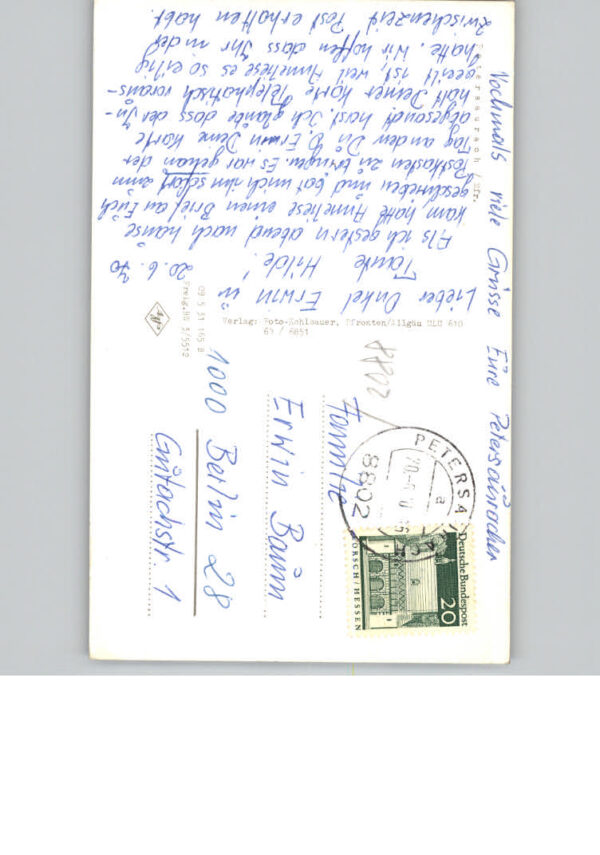 Petersaurach / Mfr.
20.6.70
Lieber Onkel Erwin u.
Tante Hilde!
Als ich gestern abend nach hause
kam hatte Anneliese einen Brief an Euch
geschrieben und bat mich ihn sofort zum
Postkasten zu bringen. Es war genau der
Tag an dem Du lb. Erwin Deine Karte
abgesandt hast. Ich glaube dass der In-
halt Deiner Karte Telephatisch voraus-
geeilt ist, weil Anneliese es so eilig
hatte. Wir hoffen dass Ihr in der
Zwischenzeit Post erhalten habt.
Nochmals viele Grüsse Eure Petersauracher
Verlag: Foto-Kohlbauer, Pfronten/Allgäu ULG 610
63 / 6851
09 5 31 165 8
Freig. RN 3/5512
Agfa
8802
Familie
Erwin Baum
1000 Berlin 28
Gurlachstr 1
PETERSAURACH
8802
a
Deutsche Bundespost
20
LORSCH/HESSEN